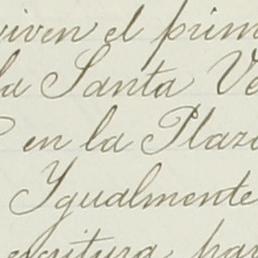 viven el prim
la Santa Ve
en la Plaza
Ygualmente
escritura, par